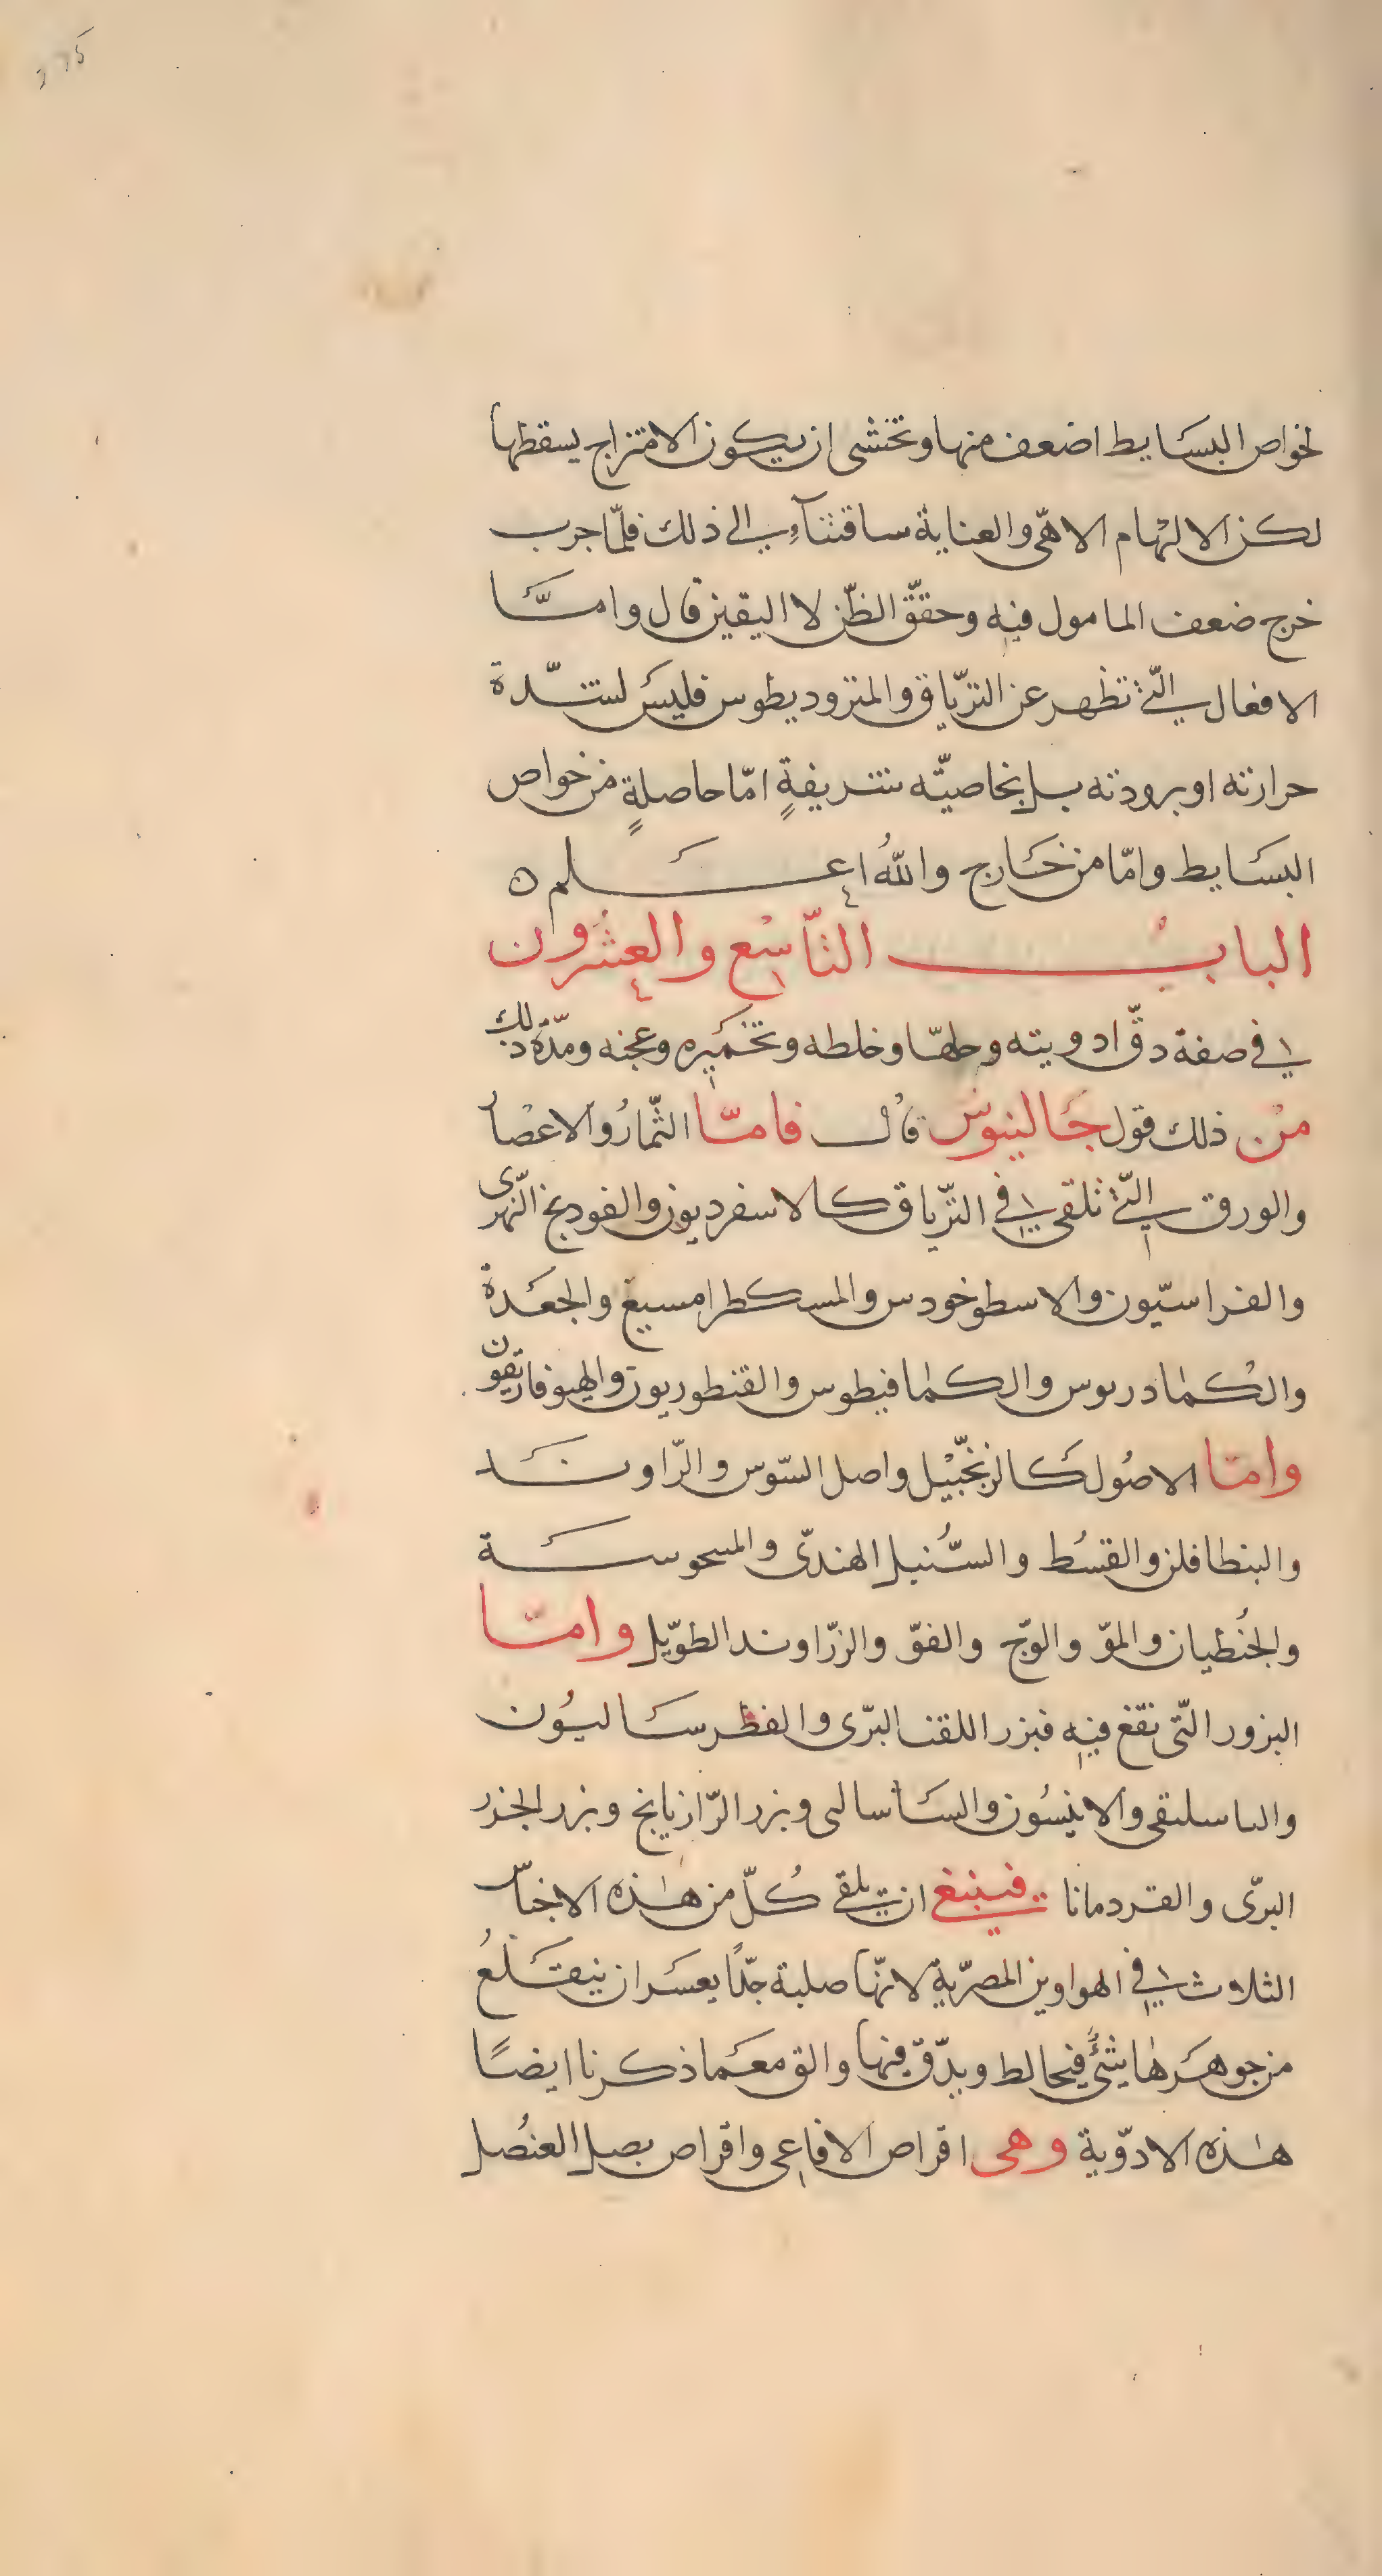 375
لخواص البسايط اضعف منها وتخشى ان يكون الامتزاج يسقطها
لكن الالهام الاهى والعناية ساقتنا الى ذلك فلمّا جرب
خرج ضعف المامول فيه وحقّق الظنّ لا اليقين قال وامّا
الافعال التى تظهر عن التّرياق والمثروديطوس فليس لشدّة
حرارته او برودته بل بخاصيّته شريفةٍ امّا حاصلةٍ من خواص
البسايط وامّا من خارج واللهُ اعلم ه
الباب التّاسع والعشرون
فى صفة دقّ ادويته وحلّها وخلطه وتخميره وعجنه ومدّة ذلك
من ذلك قول جالينوس قال فامّا الثّمارُ والاعصا
والورق التى تلقى فى التّرياق كالاسفرديون والفودنج النّهرى
والفراسيّون والاسطوخودس والمسكطرامسيع والجعدة
والكمادريوس والكمافيطوس والقنطوريون والهيوفاريقون
وامّا الاصُول كالزنجبيل واصل السّوس والرّاوند
والبنطافلن والقسُط والسُّنبل الهندىّ والمىحوسة
والجُنطيان والموّ والوّج والفوّ والزّراوند الطويل وامّا
البزور التّى تقع فيه فبزر اللقت البرّى والفطرساليُون
والباسليقى والانيسُون والساسالى وبزر الرّازيانج وبزر الجزر
البرّى والقردمانا فينبغى ان يلقى كُلّ من هٰذه الاجناس
الثلاث فى الهواوين المصريّة لانّها صلبة جّدًا يعسر ان ينقلعُ
من جوهرهٰا شئٌ فيخالط ويدّق فيها والق معما ذكرنا ايضًا
هٰذه الادوّية وهى اقراص الافاعى واقراص بصل العنُصل